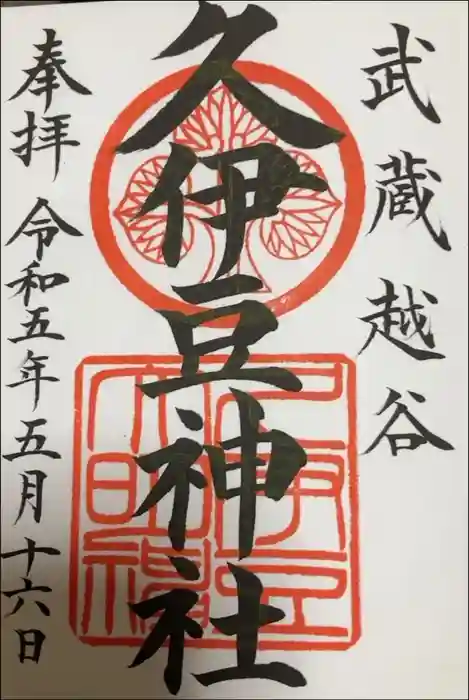 武蔵越谷
久伊豆神社
奉拝 令和五年五月十六日